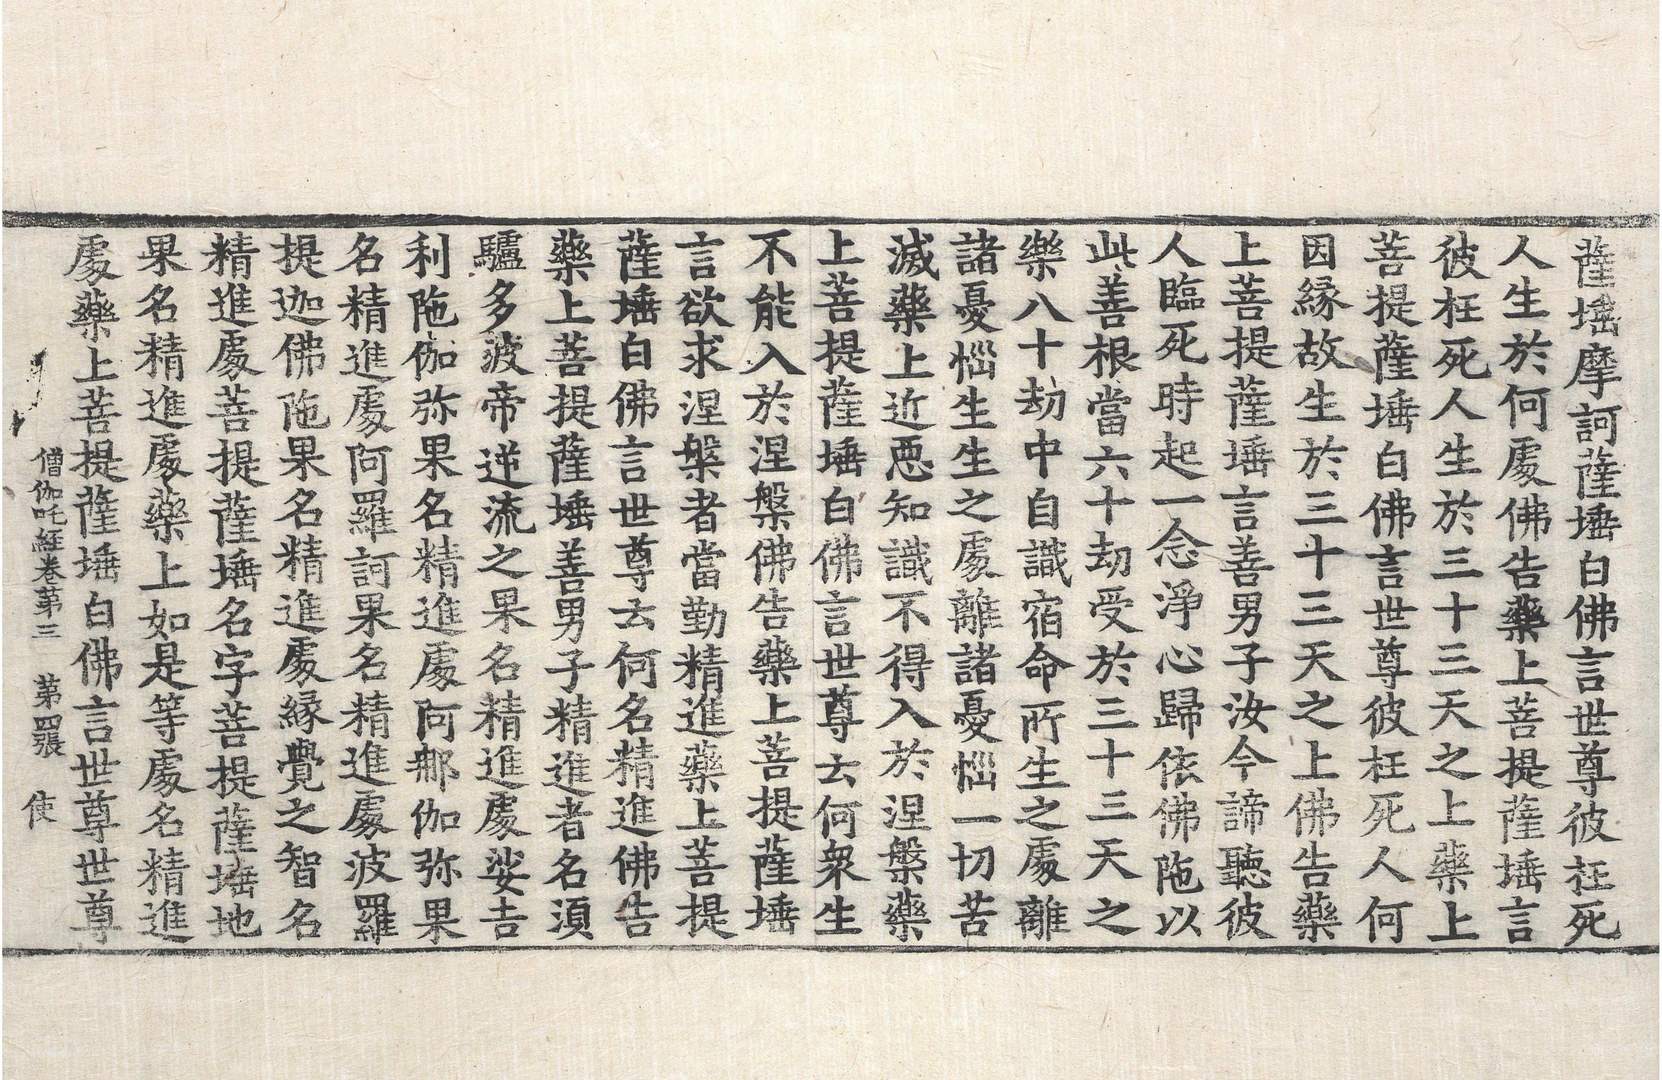 薩埵摩訶薩埵白佛言世尊彼枉死
人生於何處佛告藥上菩提薩埵言
彼枉死人生於三十三天之上藥上
菩提薩埵白佛言世尊彼枉死人何
因緣故生於三十三天之上佛告藥
上菩提薩埵言善男子汝今諦聽彼
人臨死時起一念淨心歸依佛陁以
此善根當六十劫受於三十三天之
樂八十劫中自識宿命所生之處離
諸憂惱生生之處離諸憂惱一切苦
滅藥上近惡知識不得入於涅槃藥
上菩提薩埵白佛言世尊云何衆生
不能入於涅槃佛告藥上菩提薩埵
言欲求涅槃者當勤精進藥上菩提
薩埵白佛言世尊云何名精進佛告
藥上菩提薩埵善男子精進者名湏
驢多波帝逆流之果名精進處娑吉
利陁伽弥果名精進處阿那伽弥果
名精進處阿羅訶果名精進處波羅
提迦佛陁果名精進處緣覺之智名
精進處菩提薩埵名字菩提薩埵地
果名精進處藥上如是等處名精進
處藥上菩提薩埵白佛言世尊世尊
僧伽吒經卷第三 第四張 使